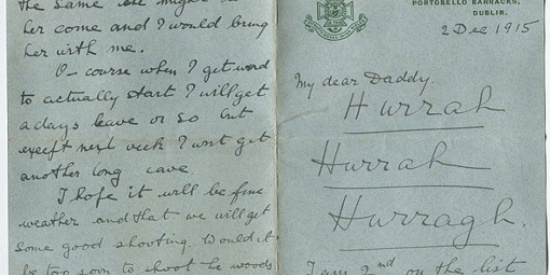 the same she might
her come and I would bring
her with me.
O- course when I get word
to actually start I will get
a days leave or so but
except next week I wont get
another long cave.
I hope it will be fine
weather and that we will get
some good shooting. Would it
be too soon to shoot he woods
PORTOBELLO BARRACKS,
DUBLIN.
2 Dec 1915
My dear Daddy.
Hurrah
Hurrah
Hurragh.
I am 2nd on the list